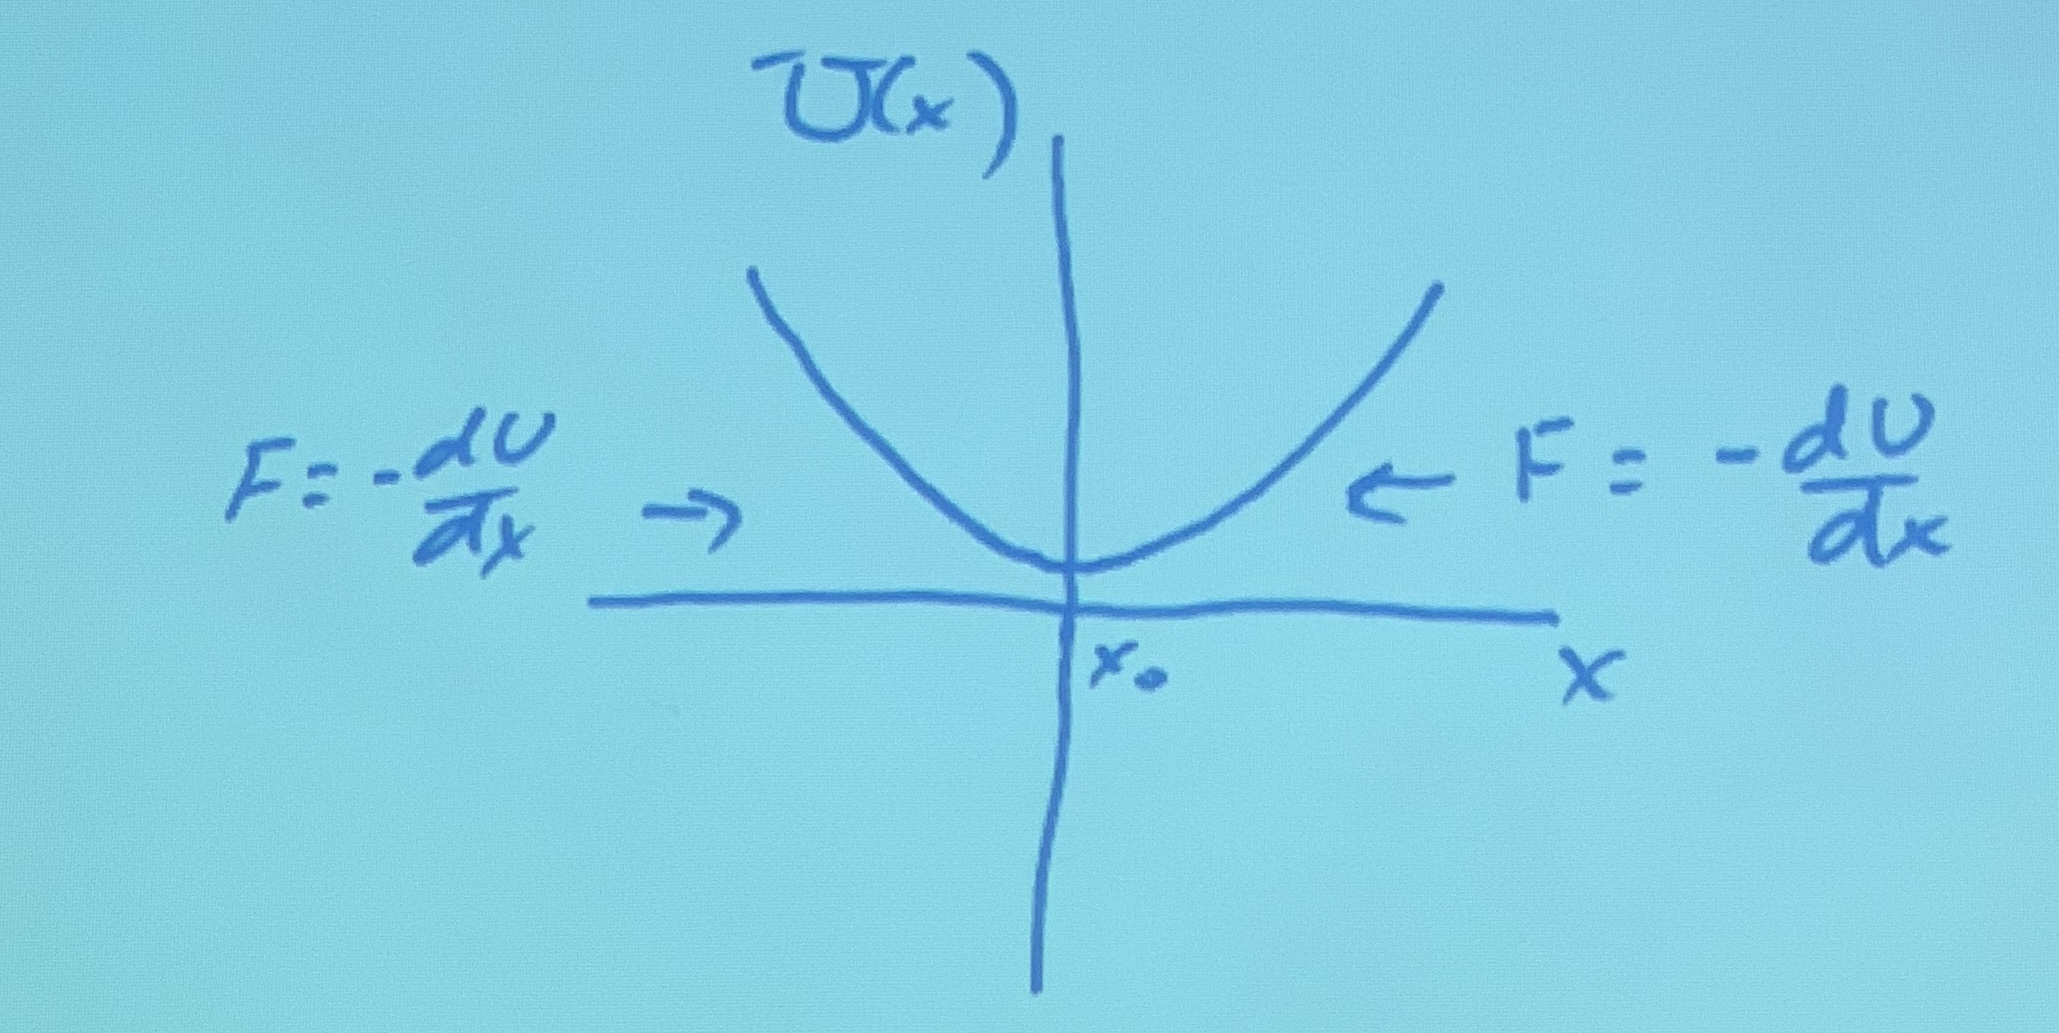 U(x)
F = -dU/dx →
← F = -dU/dx
x₀
x